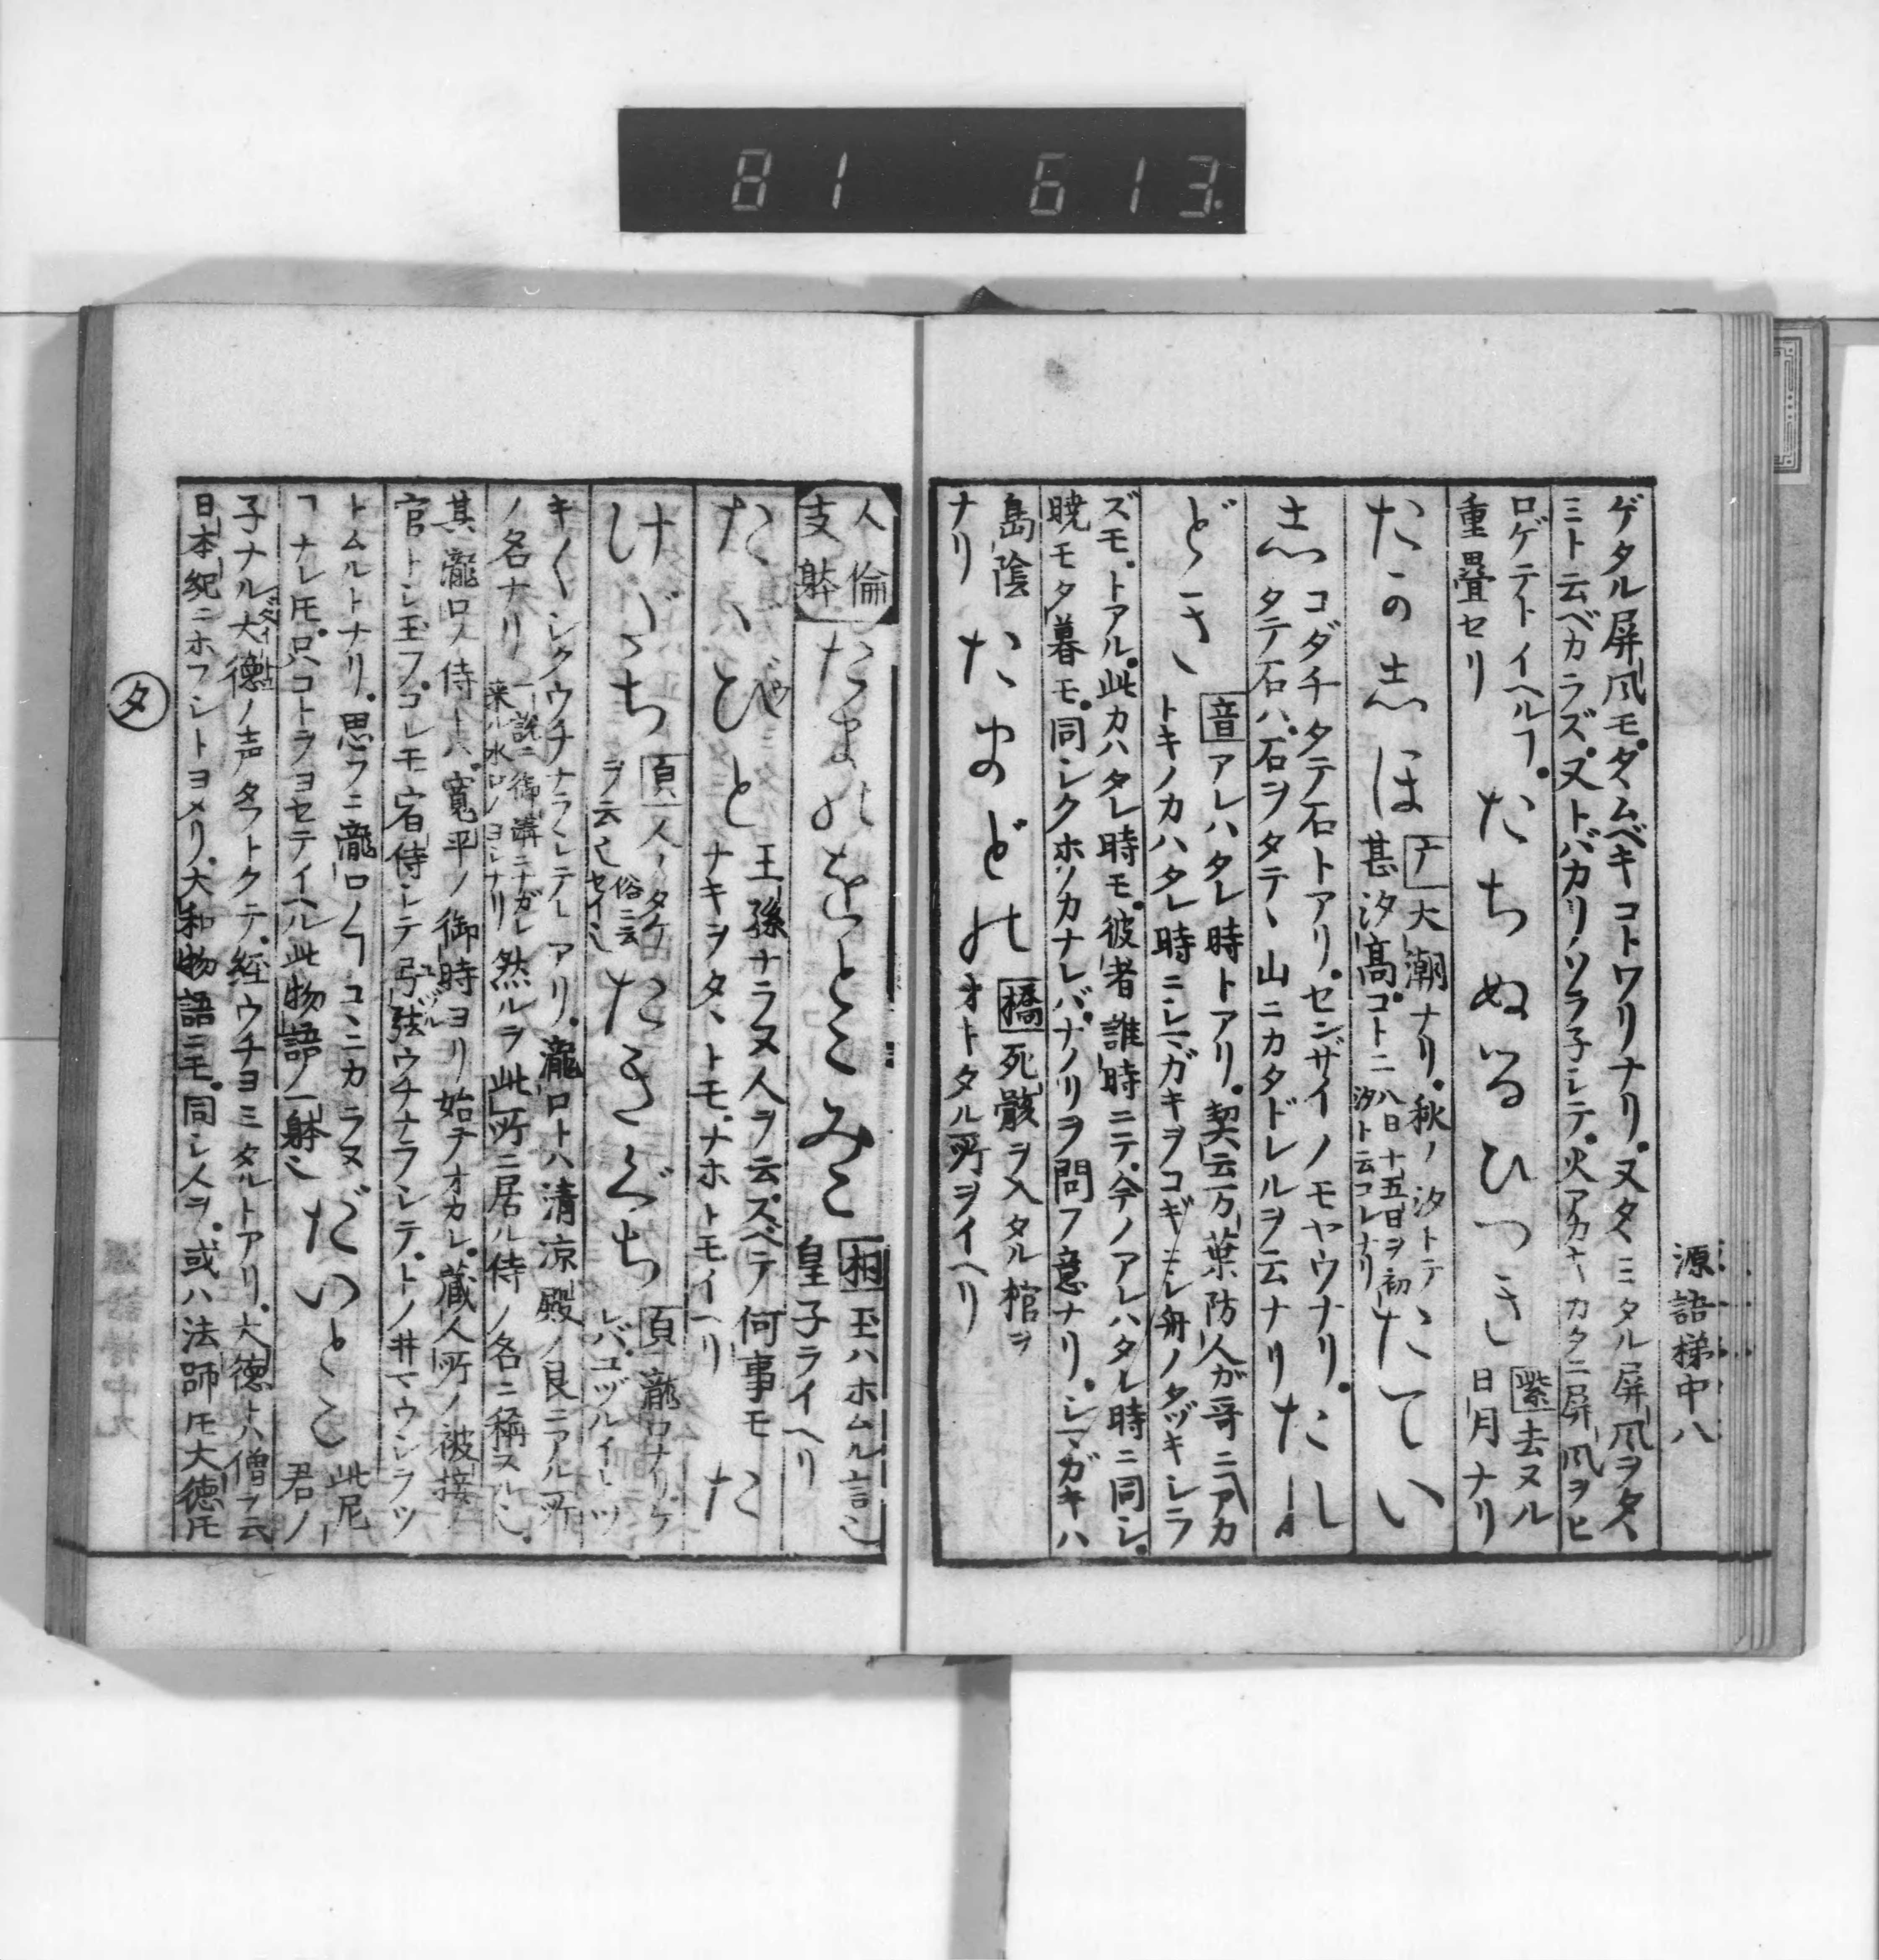 81 613
源語梯中八
ゲタル屏風モ。タヽムベキコトワリナリ。又タヽミタル屏風ヲタヽ
ミト云ベカラズ。又トバカリソラ子シテ。火アカキカタニ屏風ヲヒ
ロゲテトイヘルヿ。
重畳セリ
たちぬるひつき
紫 去ヌル
日月ナリ
たかしほ
大潮ナリ。秋ノ汐トテ
甚汐高。コトニ
八日十五日ヲ初
汐ト云コレナリ
たてい
し
コダチタテ石トアリ。センザイノモヤウナリ。
タテ石ハ。石ヲタテヽ山ニカタドレルヲ云ナリ
たれ
どき
音 アレハタレ時トアリ。契云万葉防人が哥ニアカ
トキノカハタレ時ニシマガキヲコギニシ舟ノタヅキシラ
ズモ。トアル。此カハタレ時モ。彼者誰時ニテ。今ノアレハタレ時ニ同シ。
暁モタ暮モ。同シクホノカナレバ。ナノリヲ問フ意ナリ。シマガキハ
島陰
ナリ
たまどの
橋 死骸ヲ入タル棺ヲ
オトタル所ヲイヘリ
人倫
支躰
たまのをとこみこ
桐 玉ハホムル言也
皇子ライヘリ
たヾびと
王孫ナラヌ人ヲ云ズベテ何事モ
ナキヲタヽトモ。ナホトモイヘリ
た
けだち
頁 人ノタケ
ヲ云也
俗ニ云
セイ也
たきぐち
頁 瀧口ナリケ
レバユヅルイトツ
キ〱シクウチナラシテトアリ。瀧口ト八清凉殿ノ艮ニアル所
ノ名ナリ
一説ニ御溝ニナガレ
来ル水口ノヨシナリ
然ルヲ此所ニ居ル侍ノ名ニ稱スル也。
其瀧口ノ侍トハ。寛平ノ御時ヨリ始テオカレ。蔵人所ノ被接ノ
官トシ玉フ。コレモ宿侍シテ弓弦ウチナラシテ。トノ井マウシラツ
トムルトナリ。思フニ瀧口ノヿコヽニカラヌ
ヿナレ𪜈。只コトヲヨセテイヘル此物語ノ一躰也
だいとこ
此尼
君ノ
子ナル大徳ノ声タフトクテ。経ウチヨミタルトアリ。大徳トハ僧ヲ云
日本紀ニホフシトヨメリ。大和物語ニモ。同シ人ヲ。或ハ法師𪜈大徳𪜈
タ